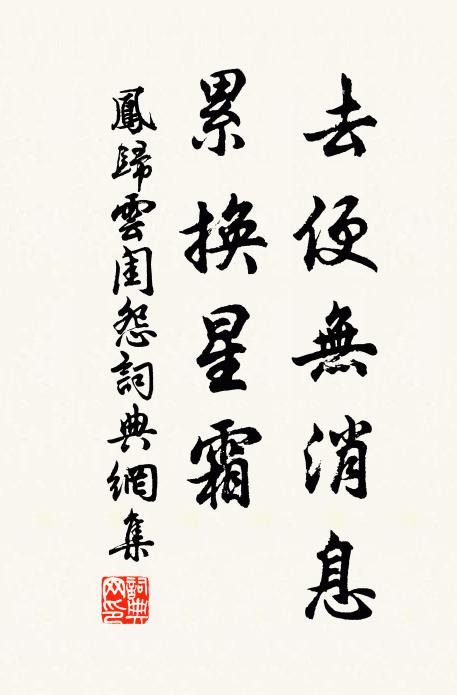 去便無消息
累換星霜
鳳歸雲閨怨詞典網集
詞典
网印